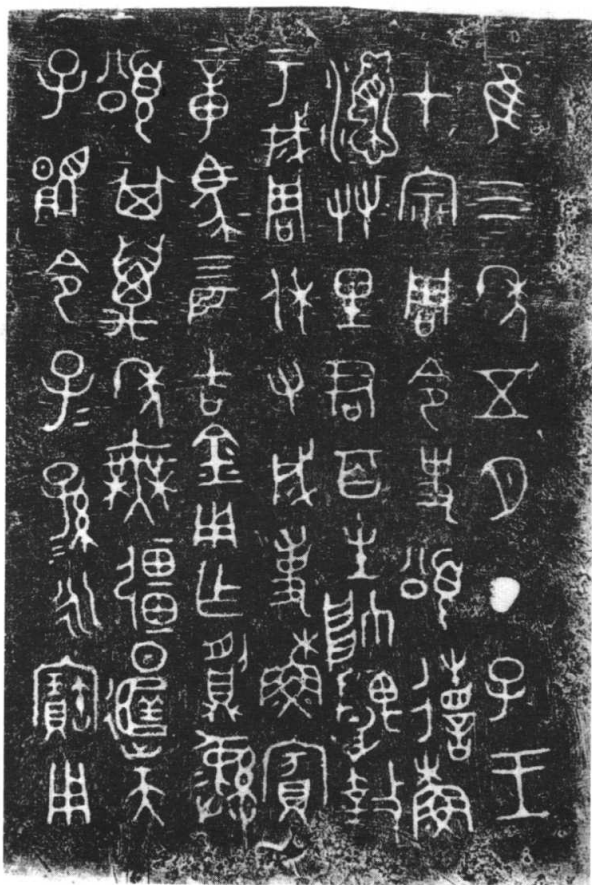 隹三年五月丁巳王
才宗周令史頌省蘇
𤅩友里君百生帥堣盩
于成周休又成事蘇賓
章馬四匹吉金用乍𩰫彝
頌其萬年無疆日𨒙天
子顯令子=孫=永寶用